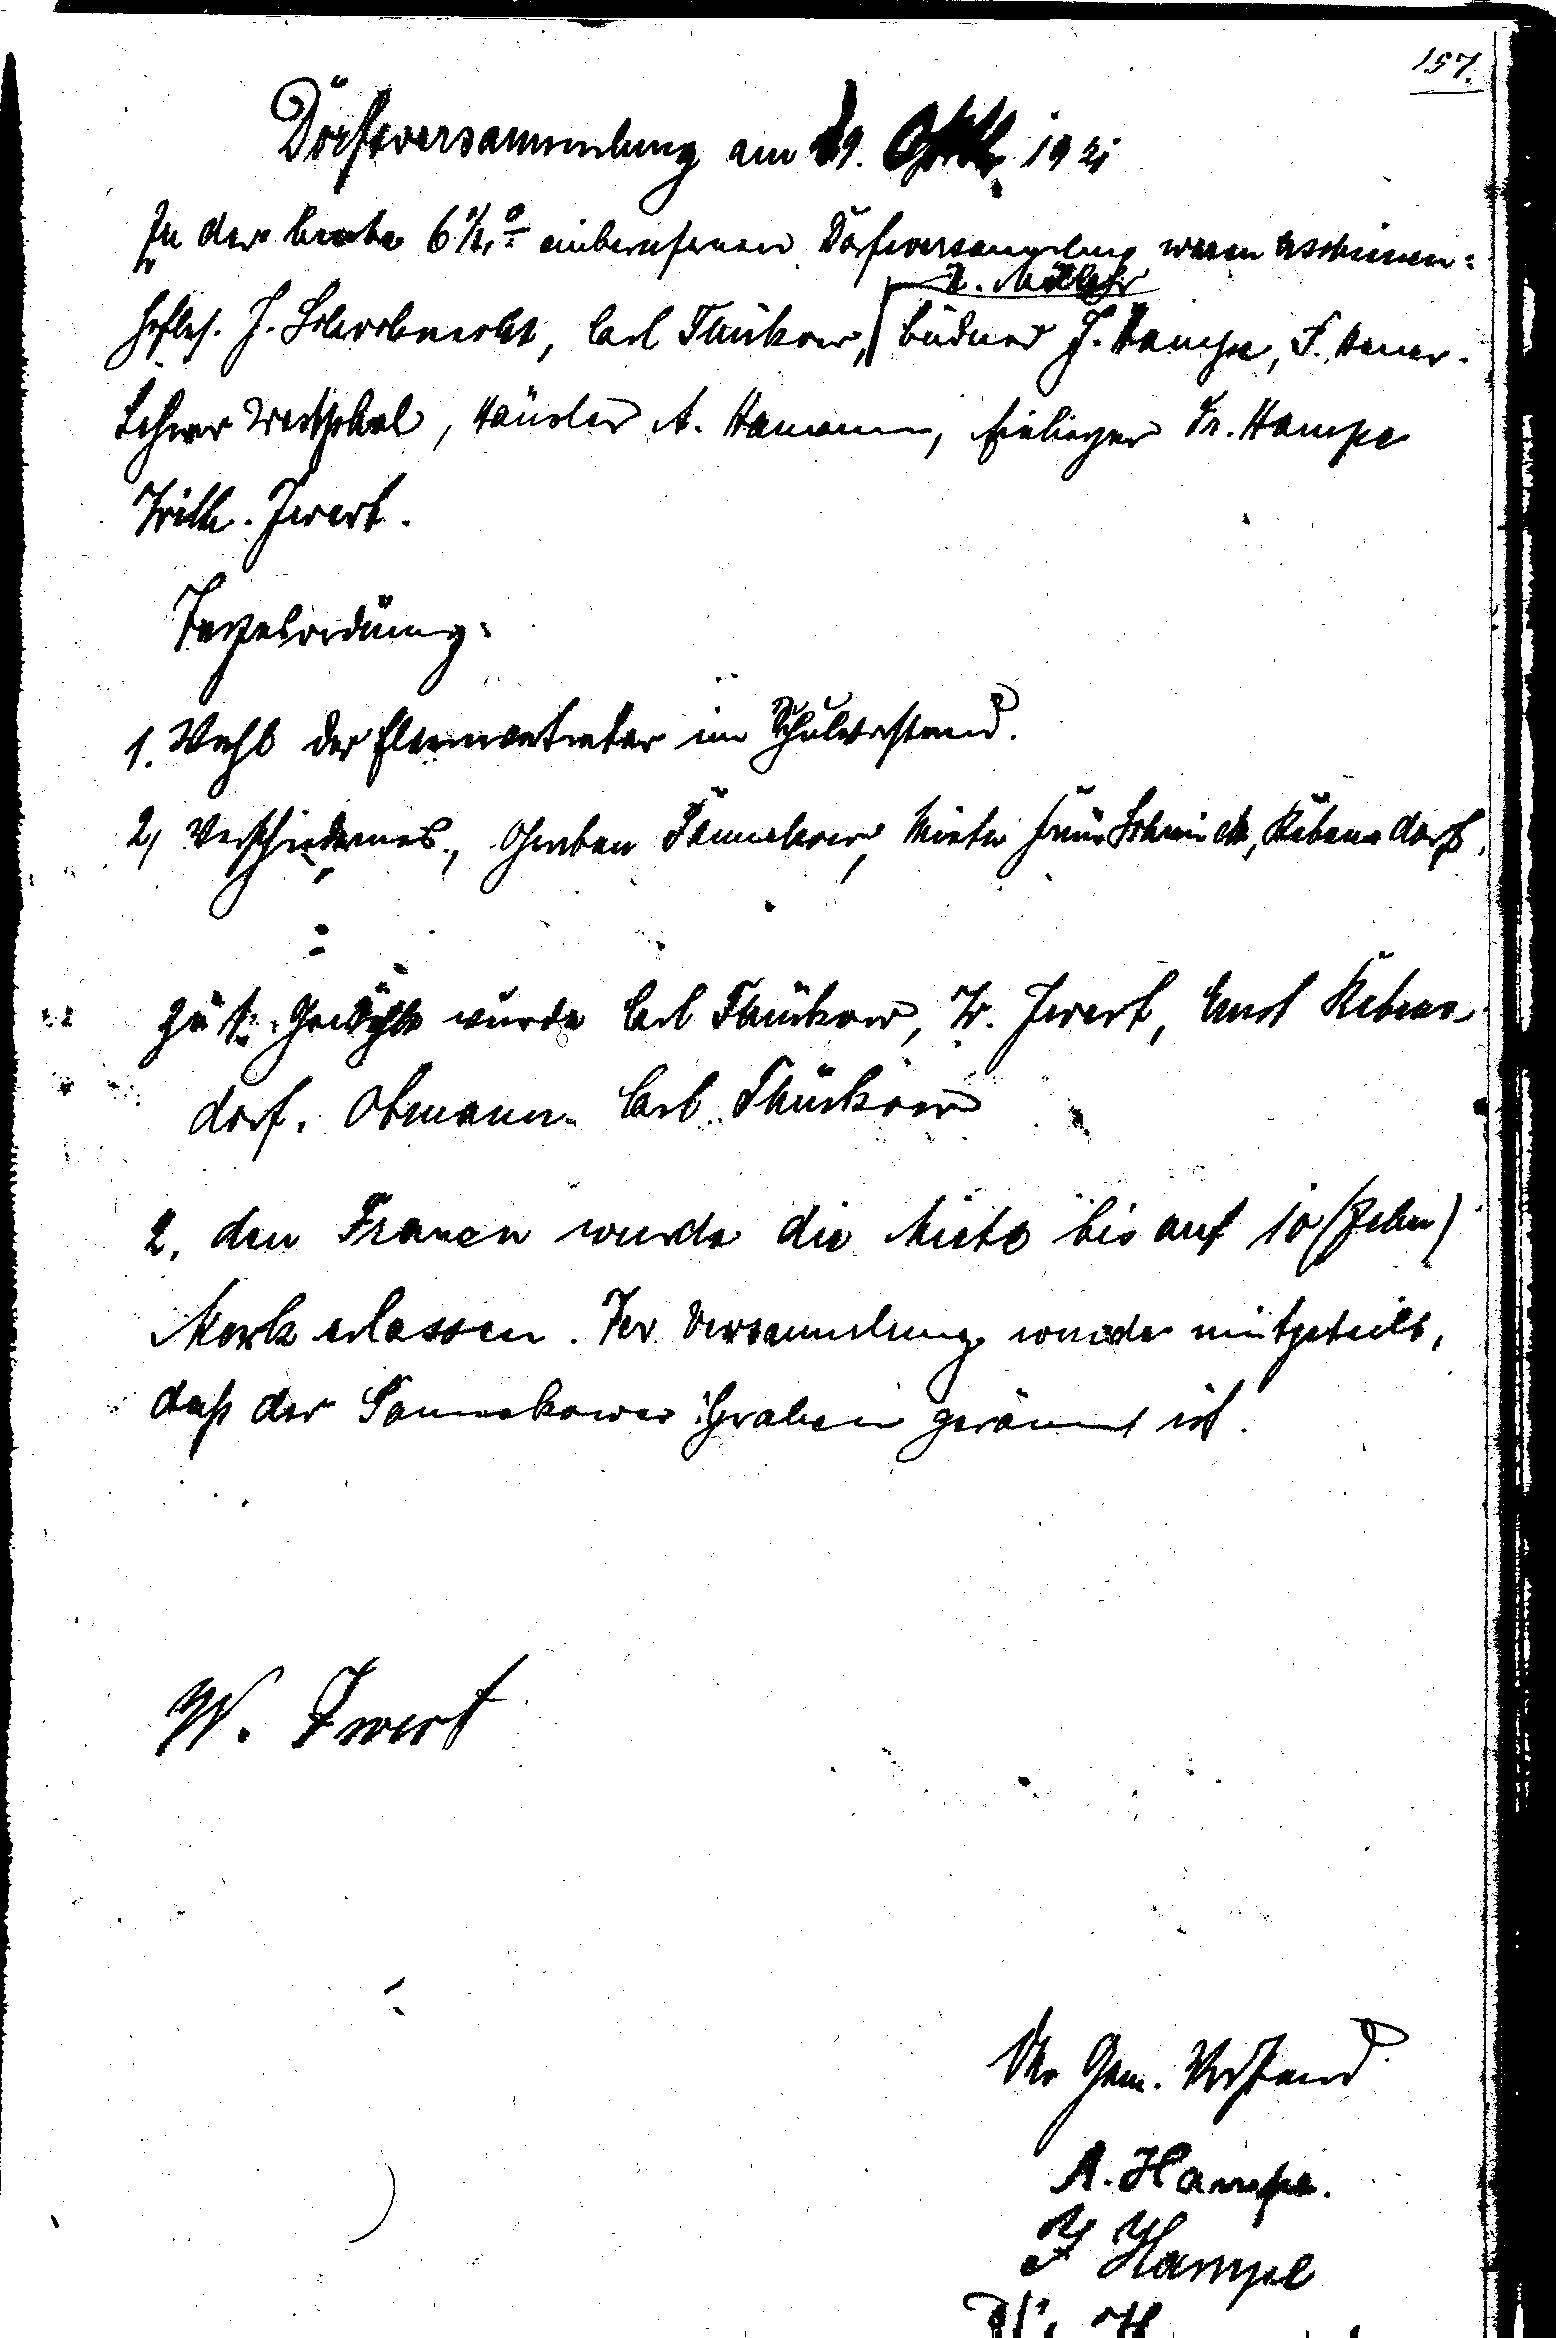 157.
Dorfsversammlung am 29. Oktb. 1921
In der heute 6 1/2 einberufenen Dorfversammlung waren erschienen:
H. Möller
Hofbes. J. Schröbneckt, Carl Thürkow, Büdner J. Hampe, F. Hamer.
Lehrer Westphal, Häusler A. Hamann, Einlieger Fr. Hampe
Wilh. Zwert.
Tagesordnung:
1. Wahl der Elternvertreter im Schulvorstand.
2) Verschiedenes, Graben Tannekow, Miete Schwinck, Kibenedorf.
Zu 1. Gewählt wurde Carl Thürkow, W. Zwert, Ernst Kiben-
dorf. Obmann Carl Thürkow
2. den Frauen wurde die Miete bis auf 10 (Zehn)
Mark erlassen. Der Versammlung wurde mitgeteilt,
daß der Tannekower Graben geräumt ist.
W. Zwert
Der Gem. Vorstand
A. Hampe.
J Hampe